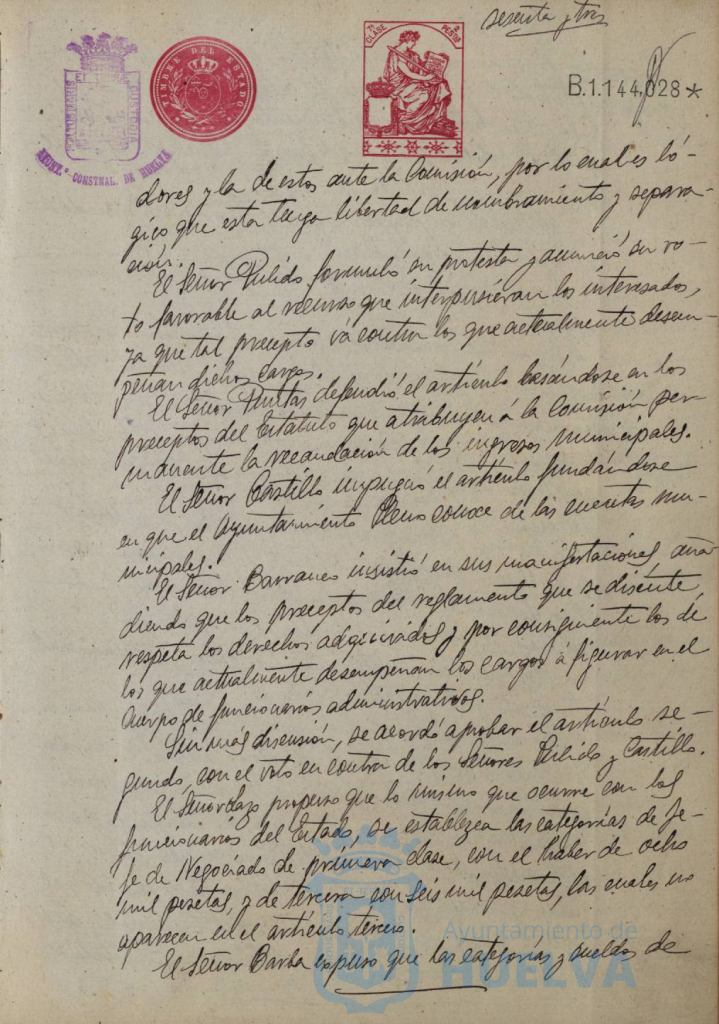 sesenta y tres
TIMBRE DEL ESTADO
7ª CLASE 2 PESTAS
B.1.144,028*
MONL. CONSTNAL. DE HUELVA
dores y la de estos ante la Comisión, por lo cual es ló-
gico que esta tenga libertad de nombramiento y separa-
ción.
El Señor Pulido formuló su protesta y anunció su vo-
to favorable al recurso que interpusieran los interesados,
ya que tal precepto vá contra los que actualmente desem-
peñan dichos cargos.
El Señor defendió el artículo basándose en los
preceptos del Estatuto que atribuyen á la Comisión per-
manente la recaudación de los ingresos municipales.
El Señor Castillo impugnó el artículo fundándose
en que el Ayuntamiento Pleno conoce de las cuentas mu-
nicipales.
El Señor Barranco insistió en sus manifestaciones aña-
diendo que los preceptos del reglamento que se discute,
respeta los derechos adquiridos y por consiguiente los de
los que actualmente desempeñan los cargos á figurar en el
Cuerpo de funcionarios administrativos.
Sin más discusión, se acordó aprobar el artículo se-
gundo, con el voto en contra de los Señores Pulido y Castillo.
El Señor Lazo propuso que lo mismo que ocurre con los
funcionarios del Estado, se establezca las categorías de Je-
fe de Negociado de primera clase, con el haber de ocho
mil pesetas, y de tercera con seis mil pesetas, las cuales no
aparecen en el artículo tercero.
El Señor Barba expuso que las categorías y sueldos de
Ayuntamiento de
HUELVA